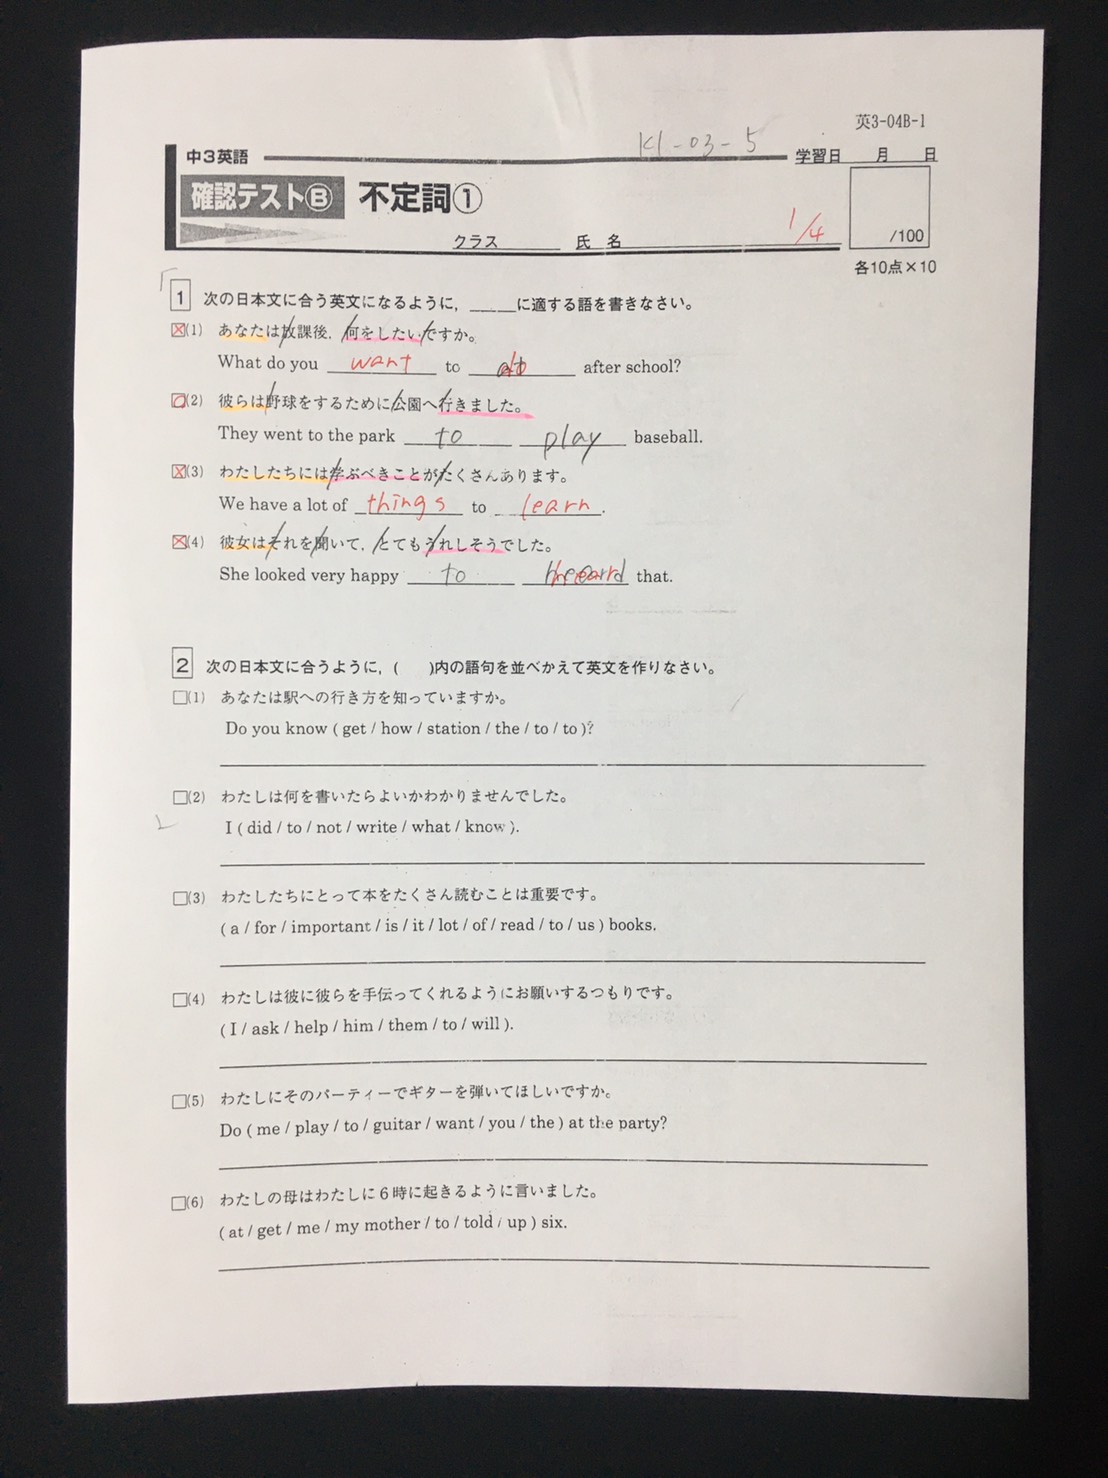 英3-04B-1
K1-03-5
中3英語
学習日 月 日
確認テストⒷ 不定詞①
1/4
/100
クラス 氏 名
各10点×10
1 次の日本文に合う英文になるように，____に適する語を書きなさい。
(1) あなたは放課後，何をしたいですか。
What do you want to do after school?
(2) 彼らは野球をするために公園へ行きました。
They went to the park to play baseball.
(3) わたしたちには学ぶべきことがたくさんあります。
We have a lot of things to learn.
(4) 彼女はそれを聞いて，とてもうれしそうでした。
She looked very happy to that.
2 次の日本文に合うように，( )内の語句を並べかえて英文を作りなさい。
(1) あなたは駅への行き方を知っていますか。
Do you know ( get / how / station / the / to / to )?
(2) わたしは何を書いたらよいかわかりませんでした。
I ( did / to / not / write / what / know ).
(3) わたしたちにとって本をたくさん読むことは重要です。
( a / for / important / is / it / lot / of / read / to / us ) books.
(4) わたしは彼に彼らを手伝ってくれるようにお願いするつもりです。
( I / ask / help / him / them / to / will ).
(5) わたしにそのパーティーでギターを弾いてほしいですか。
Do ( me / play / to / guitar / want / you / the ) at the party?
(6) わたしの母はわたしに6時に起きるように言いました。
( at / get / me / my mother / to / told / up ) six.